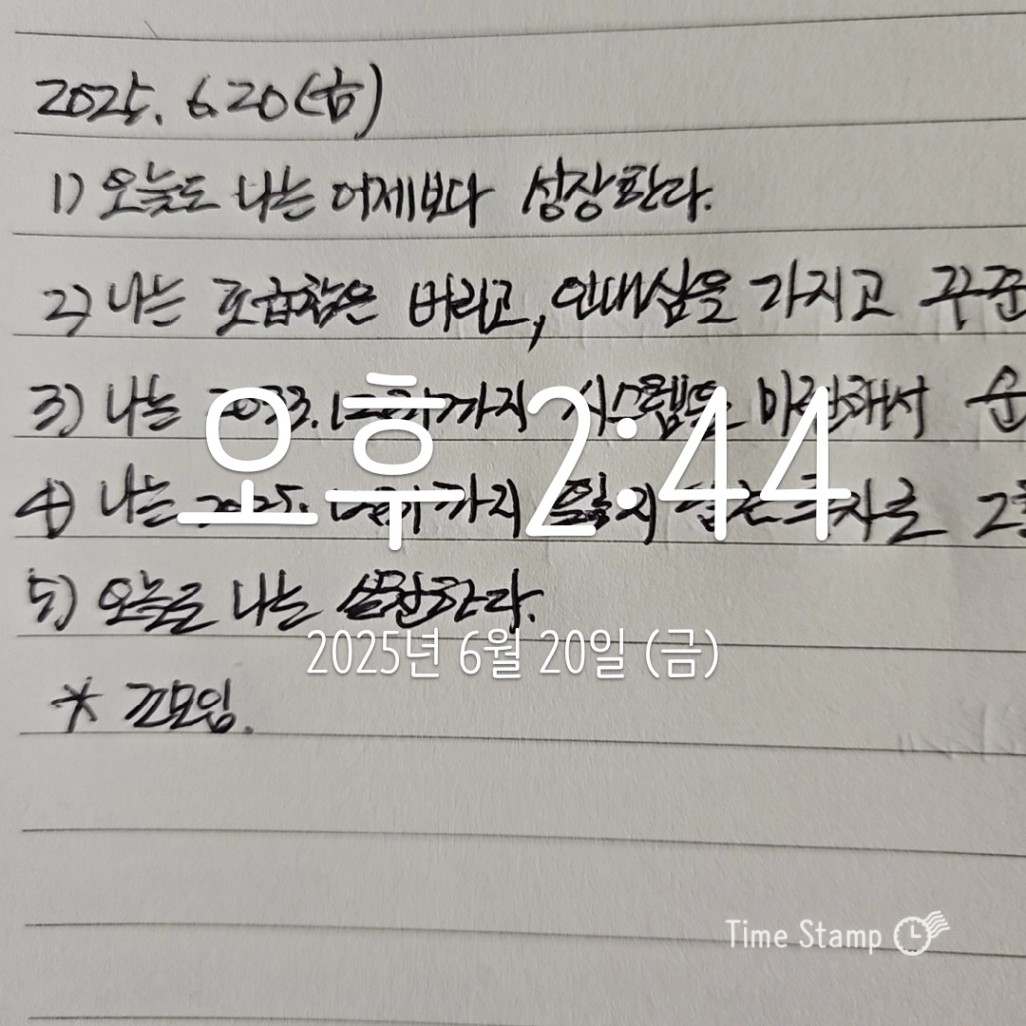 2025. 6.20(금)
1) 오늘도 나는 어제보다 성장한다.
2) 나는 조급함은 버리고, 인내심을 가지고 꾸준
3) 나는 2033.12.31까지 시스템을 마련해서
4) 나는 2025. 까지
5) 오늘도 나는 실천한다.
* 끈모임.
오후 2:44
2025년 6월 20일 (금)
Time Stamp